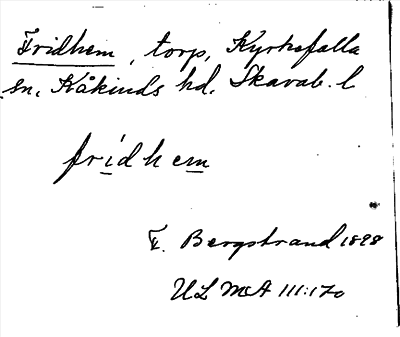 Fridhem, torp, Kyrkefalla
sn, Kåkinds hd, Skarab. l
fridhem
F. Bergstrand 1898
ULMA 111:170